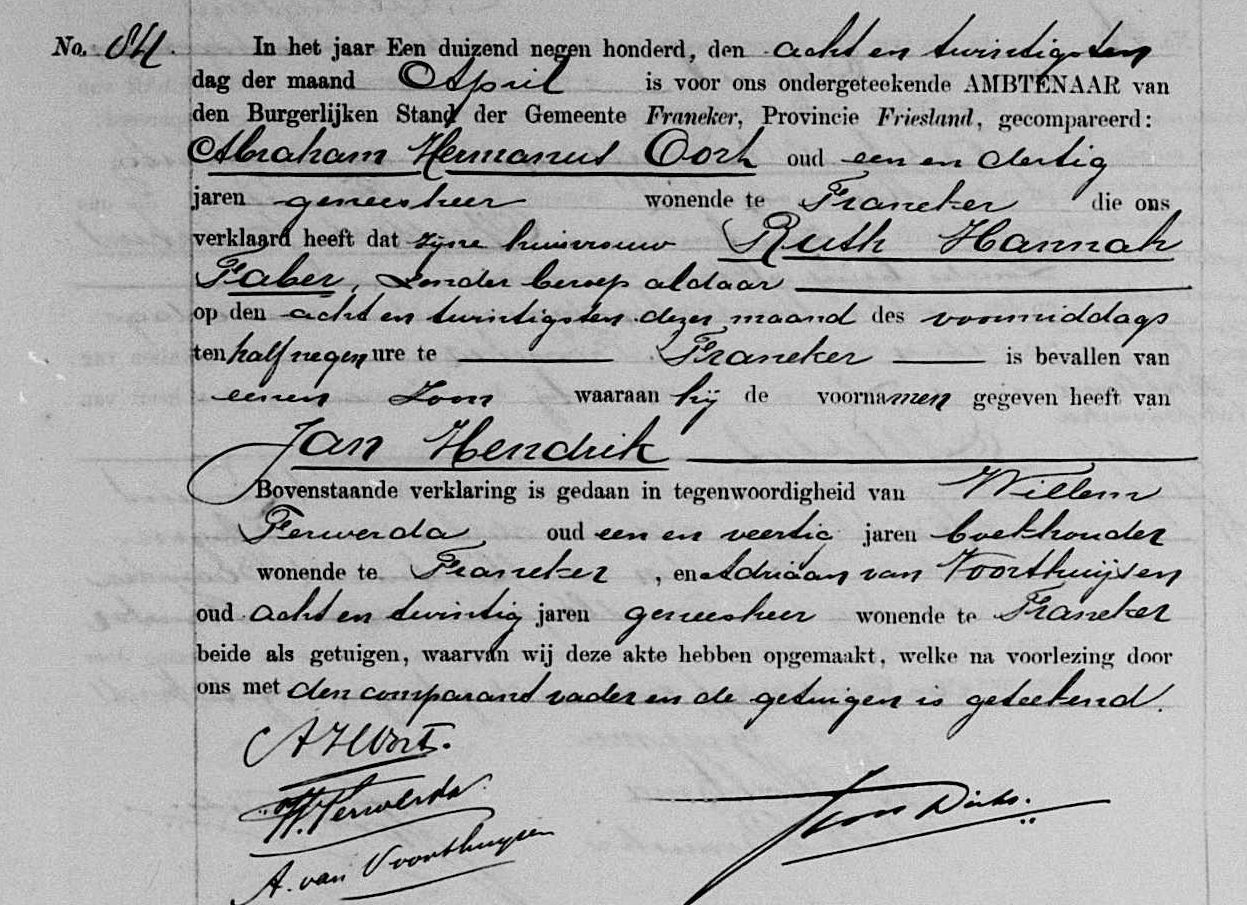 No. 84. In het jaar Een duizend negen honderd, den acht en twintigsten
dag der maand April is voor ons ondergeteekende AMBTENAAR van
den Burgerlijken Stand der Gemeente Franeker, Provincie Friesland, gecompareerd:
Abraham Hermanus Oort oud een en dertig
jaren geneesheer wonende te Franeker die ons
verklaard heeft dat zijne huisvrouw Ruth Hannah
Faber, zonder beroep aldaar
op den acht en twintigsten dezer maand des voormiddags
ten half negen ure te Franeker is bevallen van
eenen zoon waaraan hij de voornamen gegeven heeft van
Jan Hendrik
Bovenstaande verklaring is gedaan in tegenwoordigheid van Willem
Ferwerda, oud een en veertig jaren boekhouder
wonende te Franeker, en Adriaan van Voorthuijsen
oud acht en twintig jaren geneesheer wonende te Franeker
beide als getuigen, waarvan wij deze akte hebben opgemaakt, welke na voorlezing door
ons met den comparant vader en de getuigen is geteekend.
AHOort.
W. Ferwerda
A. van Voorthuysen
Dirks.